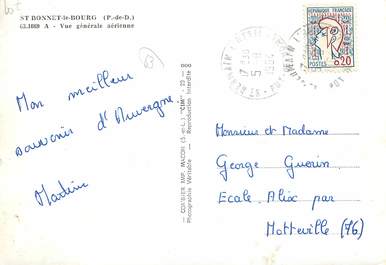 ST BONNET-le-BOURG (P.-de-D.)
63.1069 A - Vue générale aérienne
63
Mon meilleur
souvenir d'Auvergne.
Martine
COMBIER IMP. MACON (S.-et-L.) "CIM"
Photographie Véritable - Reproduction interdite
REPUBLIQUE FRANCAISE
POSTES 0,20
17H30
5-8
1964
Monsieur et Madame
George Guerin
Ecale Alix par
Motteville (76)